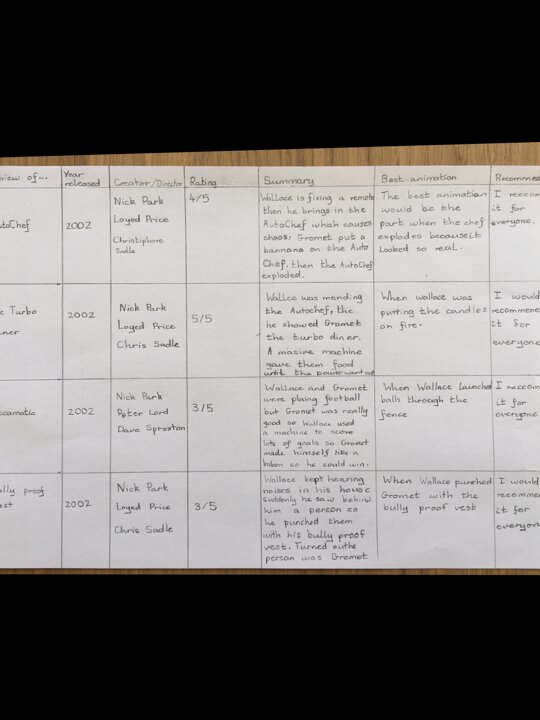 view of...
Year
released
Creator/Director
Rating
Summary
Best animation
Recommen
utoChef
2002
Nick Park
Loyed Price
Christiphore
Sadle
4/5
Wallace is fixing a remote
then he brings in the
AutoChef which causes
chaos: Gromet put a
bannana on the Auto
Chef. then the AutoChef
exploded.
The best animation
would be the
part when the chef
explodes becauseit
Looked so real.
I reccom
it for
everyone.
e Turbo
iner
2002
Nick Park
Loyed Price
Chris Sadle
5/5
Wallce was mending
the Autochef, the
he showed Gromet
the turbo diner.
A masive machine
gave them food
until the power went out
When wallace was
putting the candles
on fire.
I would
recommen
it for
everyone
ccamatic
2002
Nick Park
Peter Lord
Dave Sproxton
3/5
Wallace and Gromet
were plaing football
but Gromet was really
good so Wallace used
a machine to score
lots of goals so Gromet
made himself like a
balon so he could win.
When Wallace launches
balls through the
fence
I reccom
it for
everyone
ully proof
est
2002
Nick Park
Loyed Price
Chris Sadle
3/5
Wallace kept hearing
noises in his house
suddenly he saw behind
him a person so
he punched them
with his bully proof
vest. Turned out the
person was Gromet
When Wallace punched
Gromet with the
bully proof vest
I would
recommen
it for
everyon